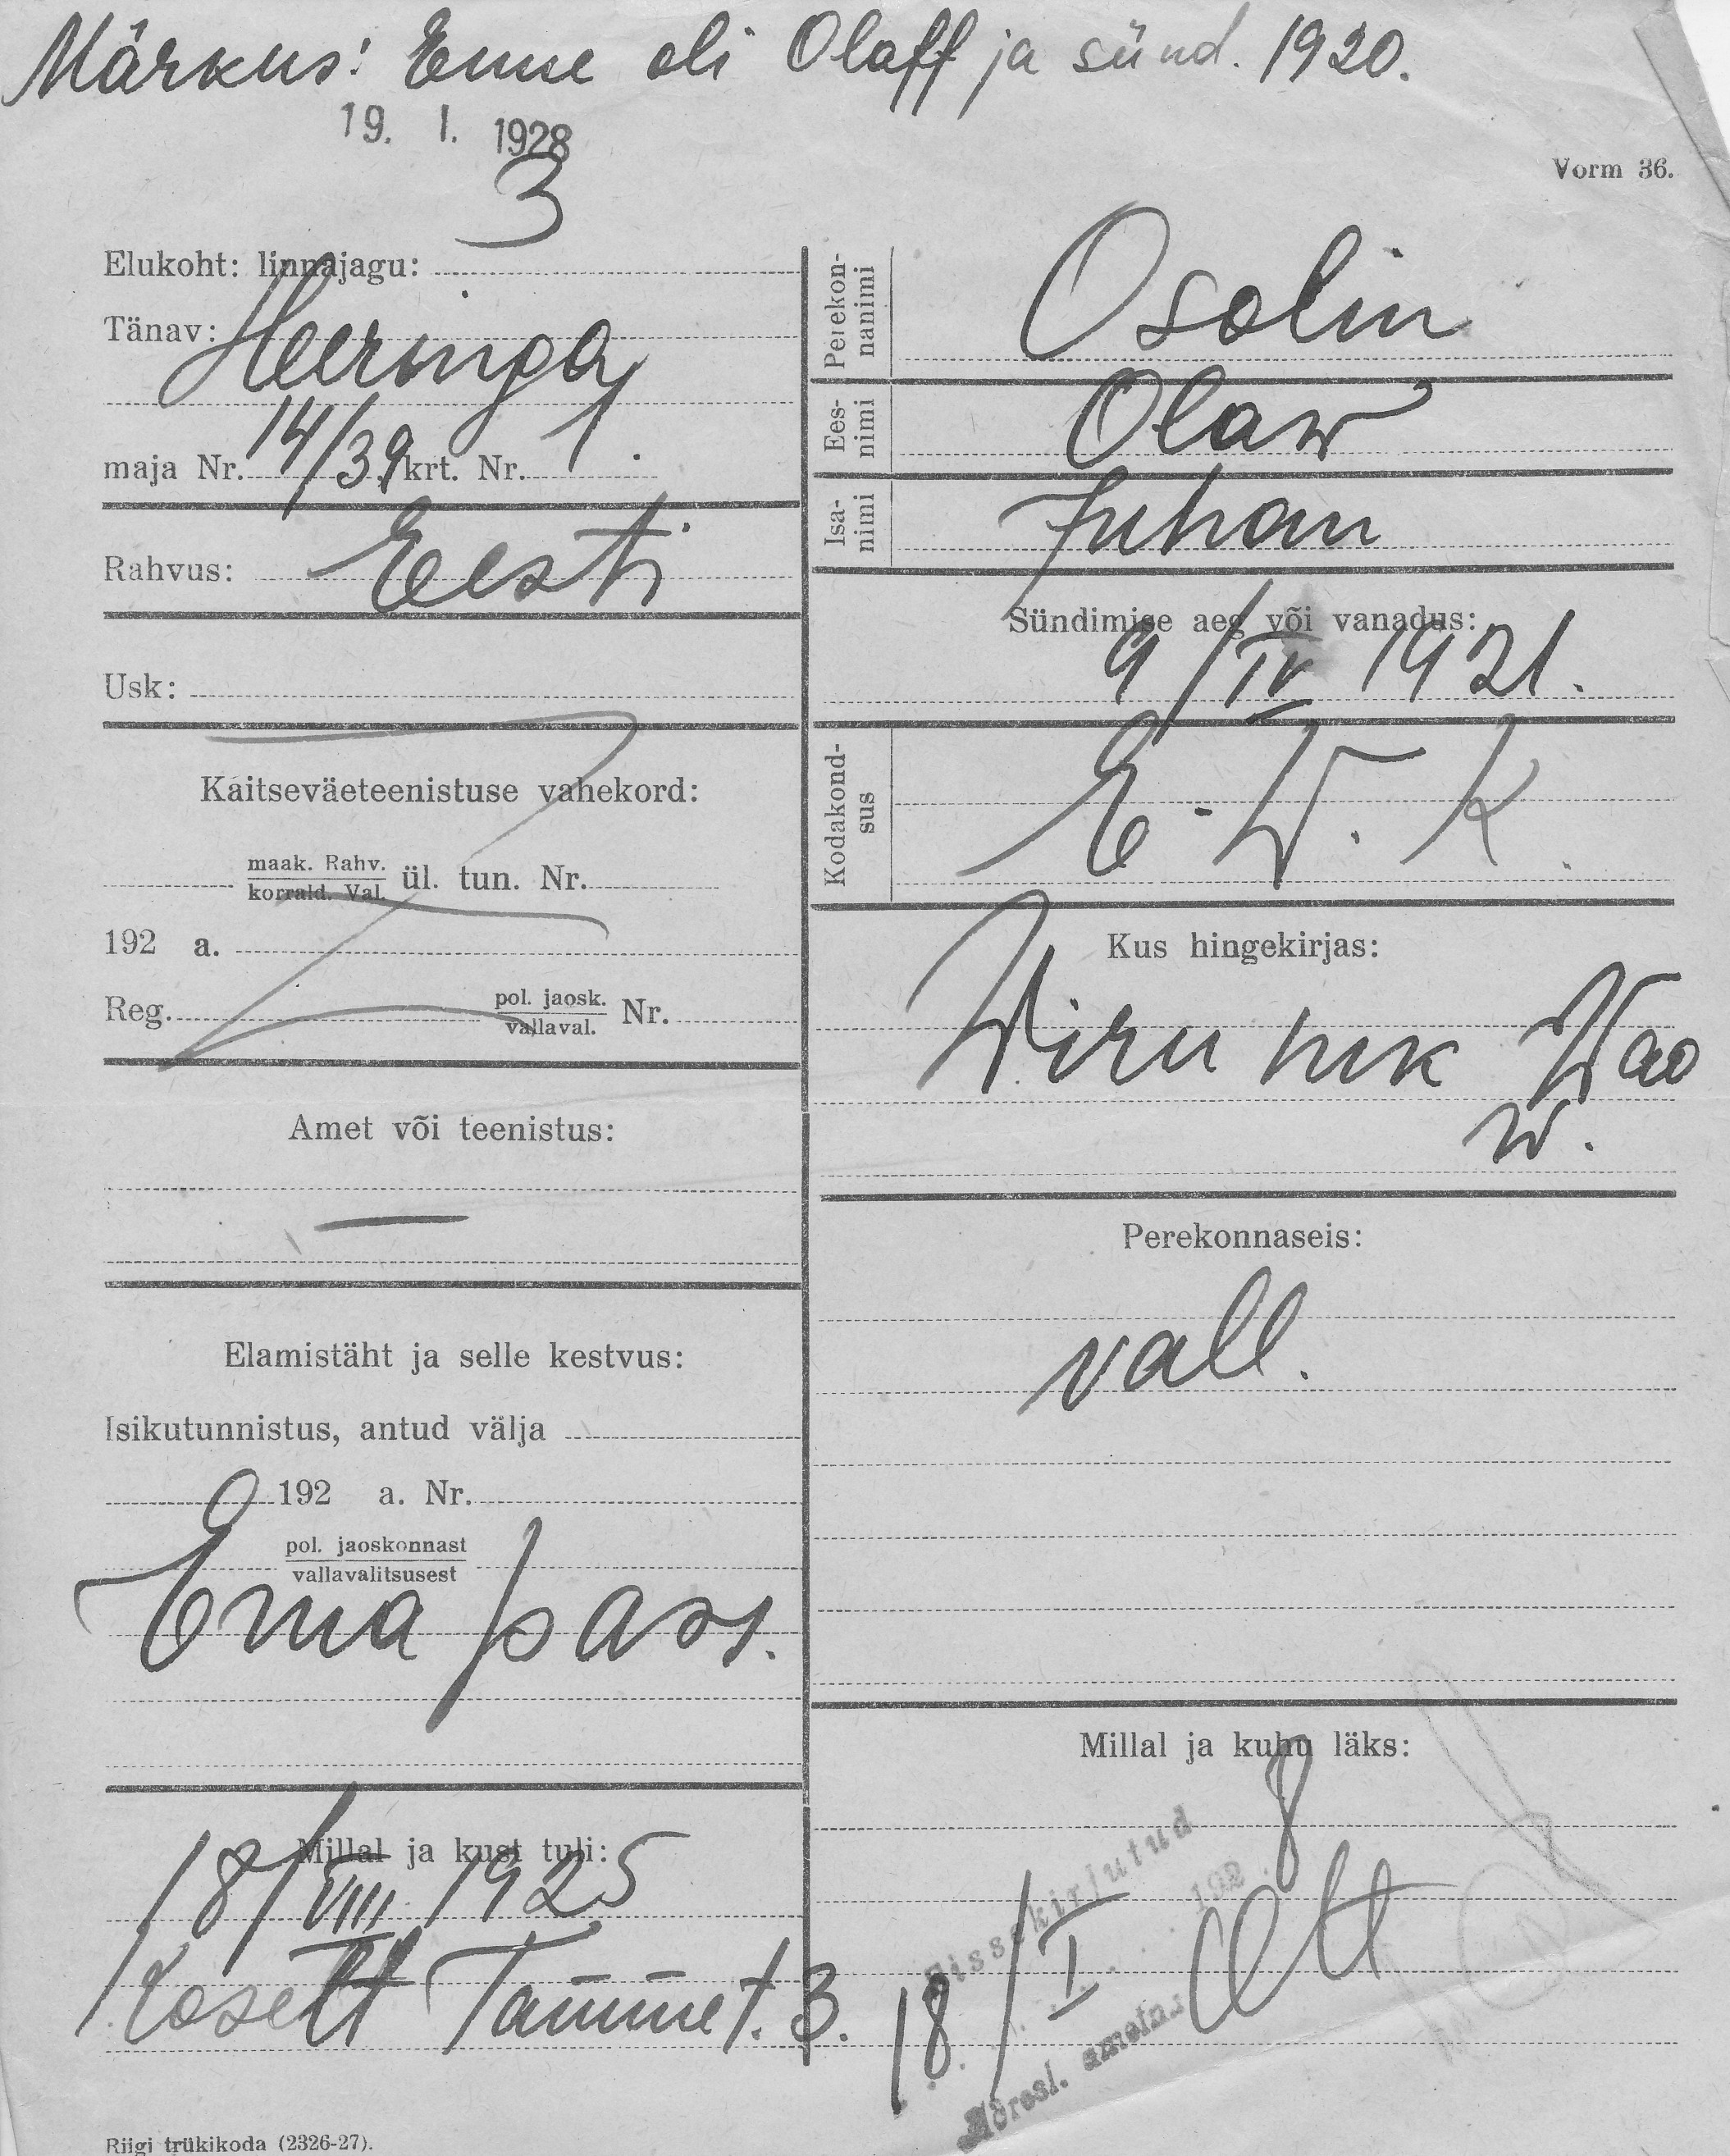 Märkus: Enne oli Olaff ja sünd. 1920.
19. I. 1928
3
Vorm 36.
Elukoht: linnajagu:
Tänav: Heeringa
maja Nr. 14/39 krt. Nr. 1.
Rahvus: Eesti
Usk:
Kaitseväeteenistuse vahekord:
maak. Rahv.
korrald. Val. ül. tun. Nr.
192 a.
Reg. pol. jaosk.
vallaval. Nr.
Amet või teenistus:
—
Elamistäht ja selle kestvus:
Isikutunnistus, antud välja
192 a. Nr.
pol. jaoskonnast
vallavalitsusest
Ema pass.
Millal ja kust tuli:
18/VIII 1925
Koselt Tamme t. 3.
Riigi trükikoda (2326-27).
Perekon-
nanimi
Osolin
Ees-
nimi
Olaw
Isa-
nimi
Juhan
Sündimise aeg või vanadus:
9/IV 1921.
Kodakond-
sus
E. W. K.
Kus hingekirjas:
Wiru mk Wao
w.
Perekonnaseis:
vall.
Millal ja kuhu läks:
8
Sissekirjutud
192
18/I
Adresl. ametn.